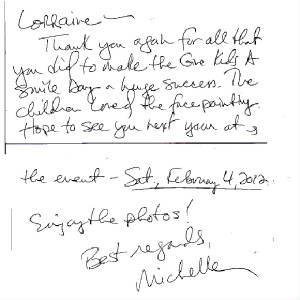 Lorraine —
Thank you again for all that
you did to make the Give Kids A
Smile Day a huge success. The
children loved the facepainting.
Hope to see you next year at →
the event - Sat, February 4, 2012.
Enjoy the photos!
Best regards,
Michelle